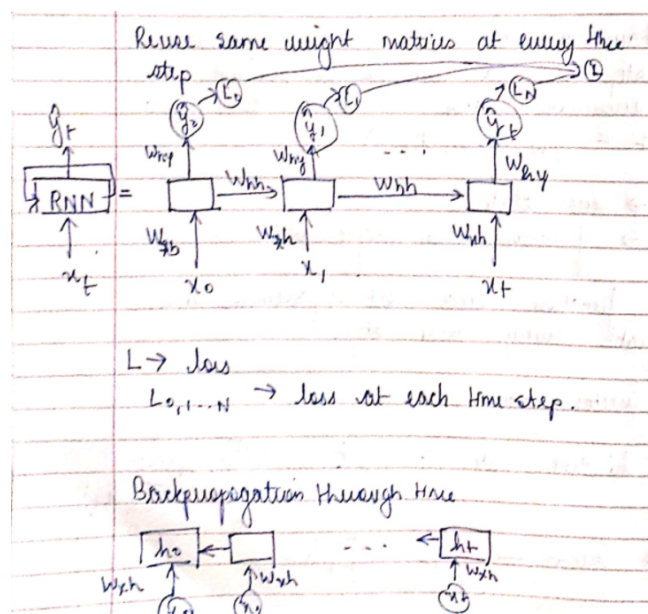 Reuse same weight matrices at every time
step
L₀ L₁ L_N L
ŷ_t ŷ₀ ŷ₁ ŷ_t
W_hy W_hy W_hy
RNN = W_hh W_hh
W_xh W_xh W_xh
x_t x₀ x₁ x_t
...
L → loss
L₀,₁...N → loss at each time step.
Backpropagation through time
h₀ ... h_t
W_xh W_xh W_xh